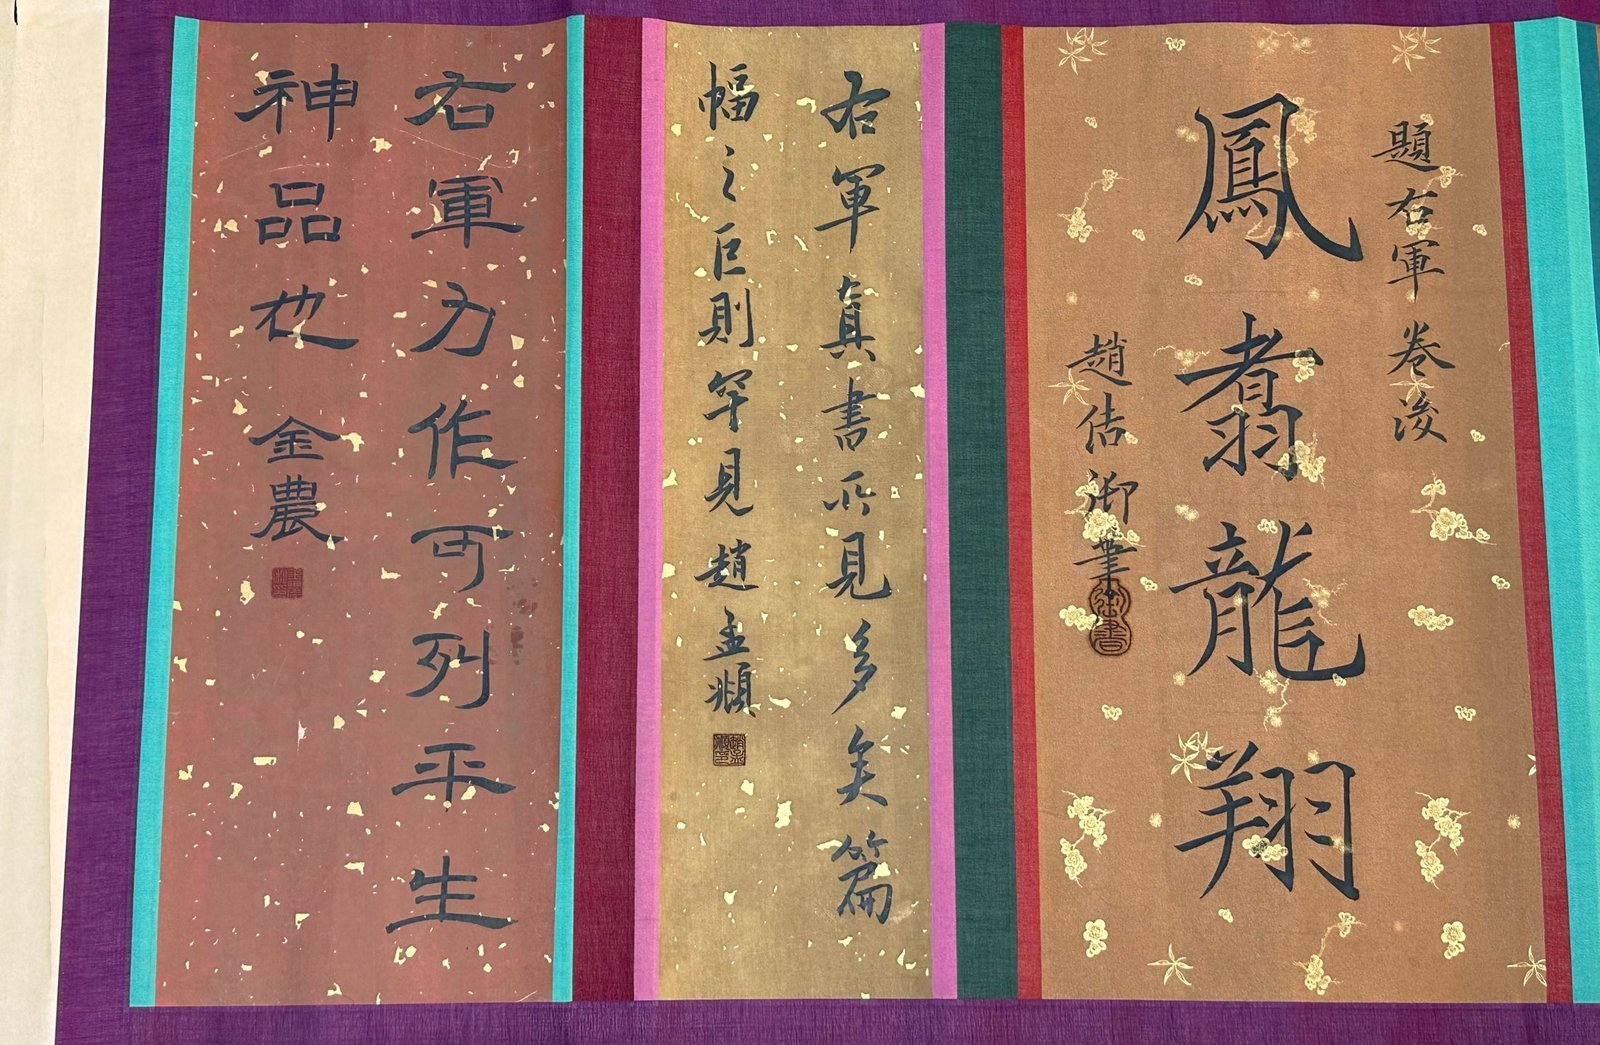 題右軍卷浚
鳳翥龍翔
趙佶御筆
御書
右軍真書所見多矣篇
幅之巨則罕見 趙孟頫
右軍力作可列平生
神品也 金農